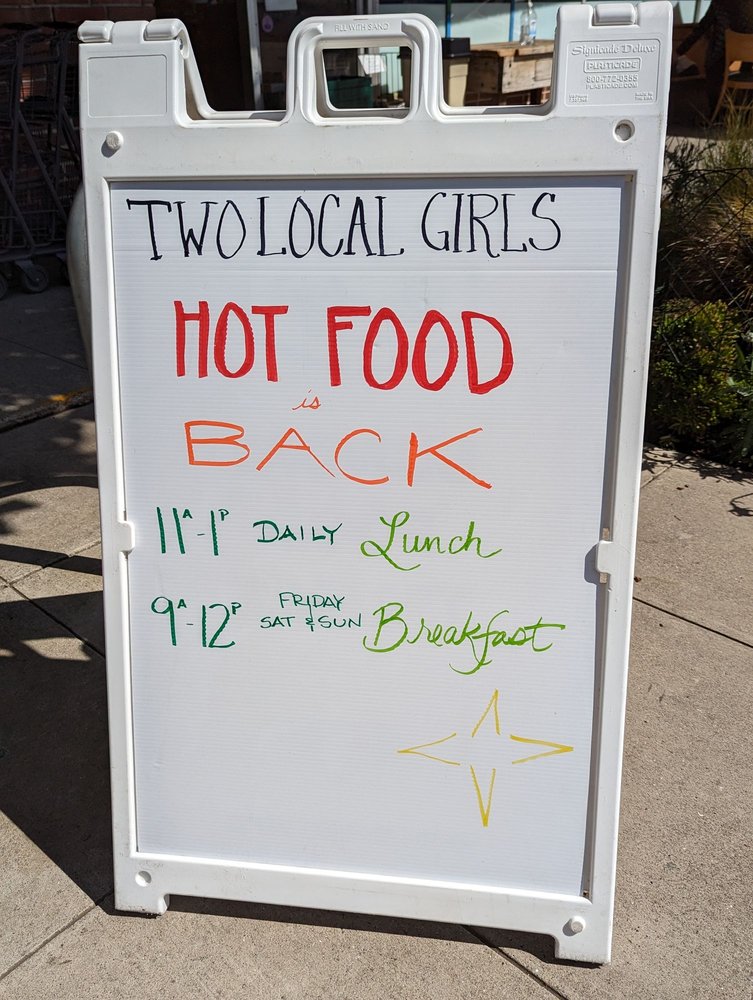 FILL WITH SAND
Signicade Deluxe
PLASTICADE
800-772-0355
PLASTICADE.COM
TWO LOCAL GIRLS
HOT FOOD
is
BACK
11A-1P DAILY Lunch
9A-12P FRIDAY SAT & SUN Breakfast